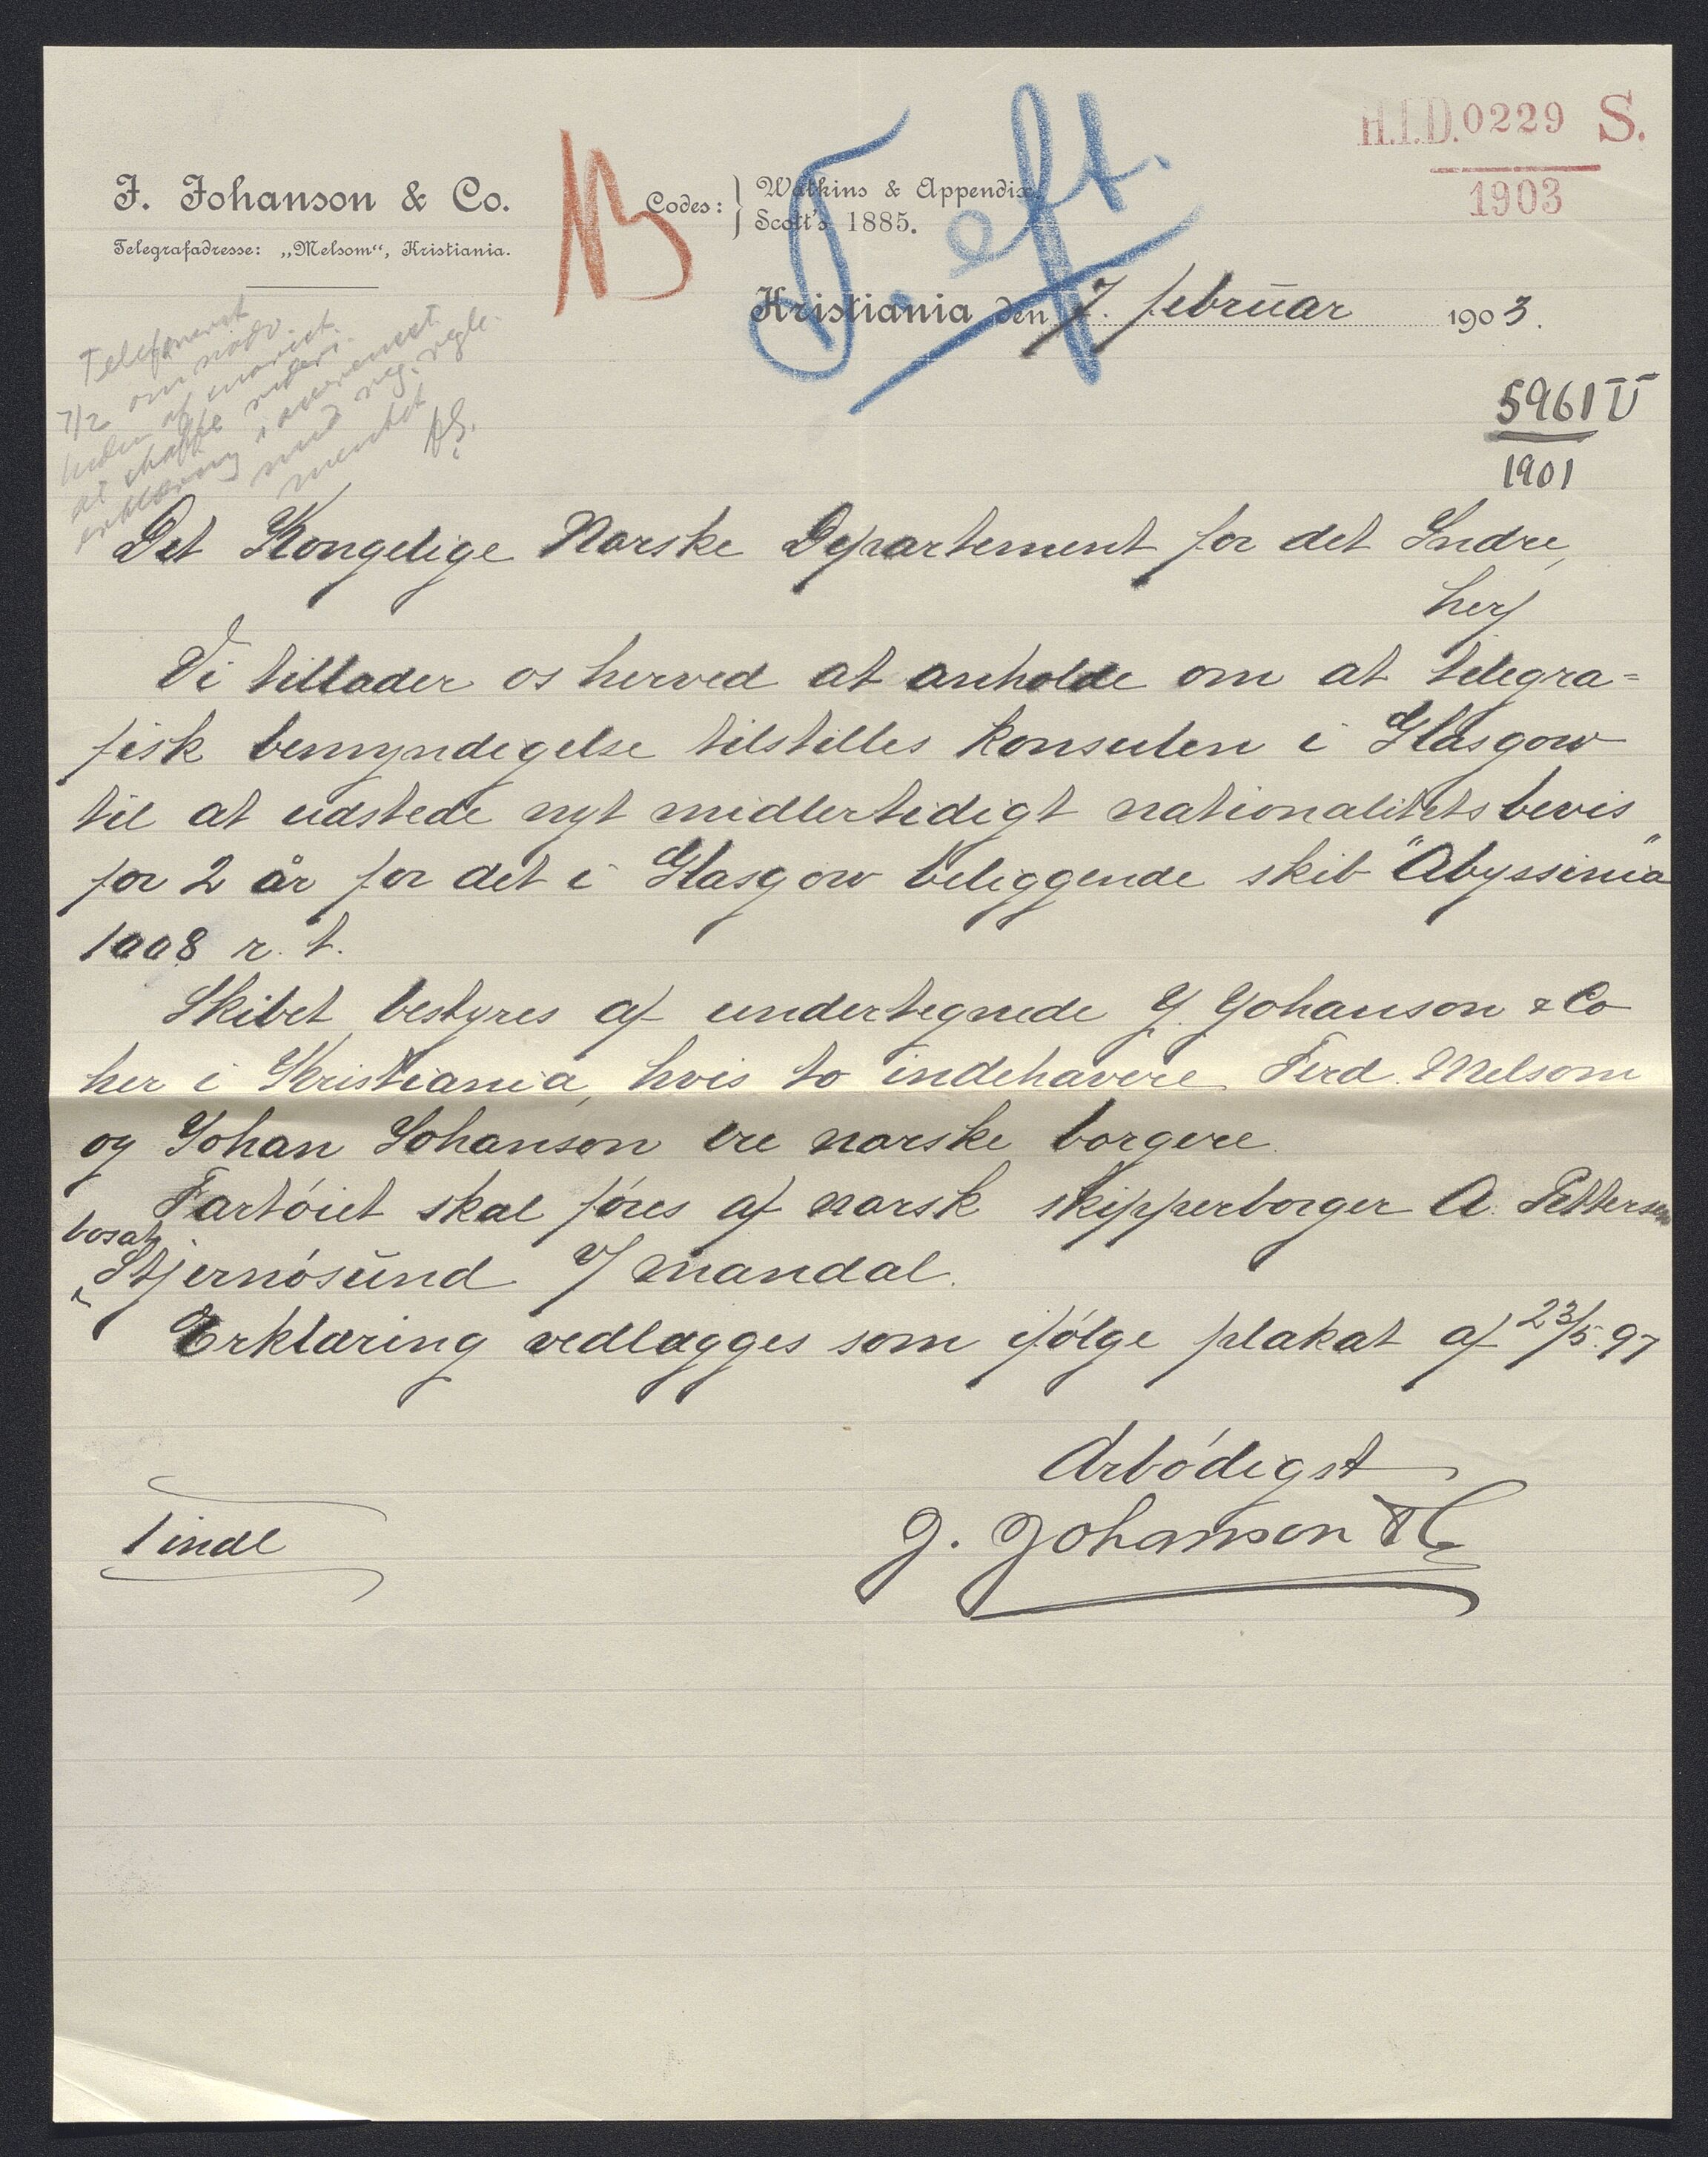 H.I.D. 0229 S.
1903
J. Johanson & Co.
Telegrafadresse: „Melsom“, Kristiania.
Codes: } Watkins & Appendix
Scott's 1885.
Kristiania den 7. februar 1903.
5961 V
1901
Telefoneret
7/2 om nødv
at skaffe
erklæring i overensst
med reg. regle-
mentet
Det Kongelige Norske Departement for det Indre,
her
Vi tillader os herved at anholde om at telegra=
fisk bemyndigelse tilstilles konsulen i Glasgow
til at udstede nyt midlertidigt nationalitetsbevis
for 2 år for det i Glasgow beliggende skib "Abyssinia"
1008 r. t.
Skibet bestyres af undertegnede J. Johanson & Co
her i Kristiania, hvis to indehavere Ferd. Melsom
og Johan Johanson ere norske borgere.
Fartóiet skal fóres af norsk skipperborger A. Pettersen
bosat
Stjernósund v/ Mandal.
Erklæring vedlægges som ifólge plakat af 23/5. 97
Ærbódigst
J. Johanson & Co
1 indl